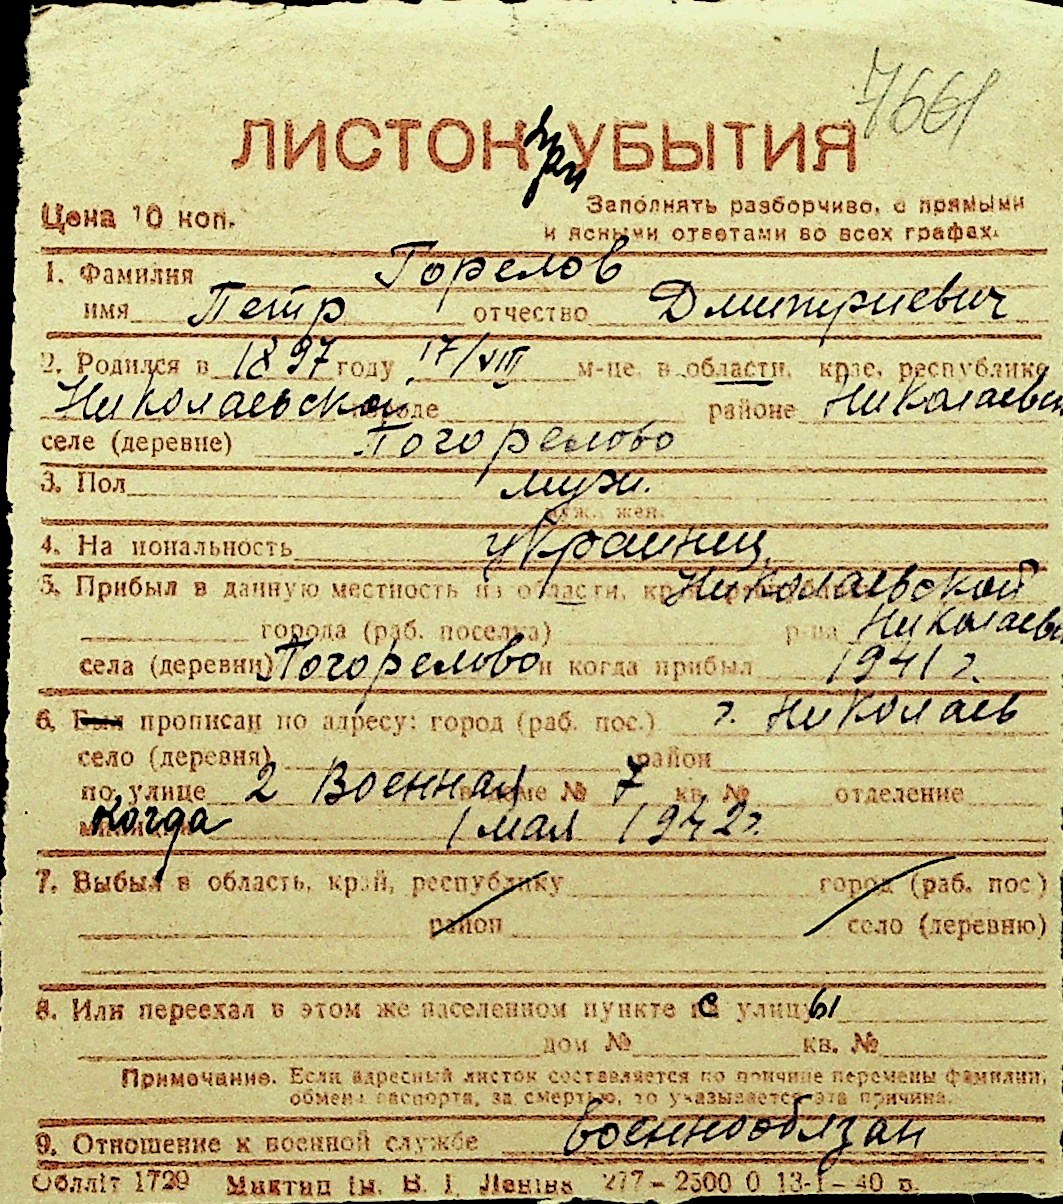 7661
ЛИСТОК при УБЫТИЯ
Цена 10 коп.
Заполнять разборчиво, с прямыми
и ясными ответами во всех графах.
1. Фамилия Горелов
имя Петр отчество Дмитриевич
2. Родился в 1897 году 17/VIII м-це, в области, крае, республике
Николаевской районе Николаевск
селе (деревне) Погорелово
3. Пол муж.
муж., жен.
4. На иональность украинец
5. Прибыл в данную местность из области, Николаевской
города (раб. поселка) р-на Николаевс
села (деревни) Погорелово и когда прибыл 1941 г.
6. Был прописан по адресу: город (раб. пос.) г. Николаев
село (деревня) район
по улице 2 Военная в доме № 7 кв. № отделение
когда 1 мая 1942 г.
7. Выбыл в область, край, республику город (раб. пос.)
район село (деревню)
8. Или переехал в этом же населенном пункте с улицы
дом № кв. №
Примечание. Если адресный листок составляется по причине перемены фамилии,
обмена паспорта, за смертью, то указывается эта причина.
9. Отношение к военной службе военнообязан
Облліт 1729 Миктип ім. В. І. Леніна 277-2500 0 13-I-40 р.